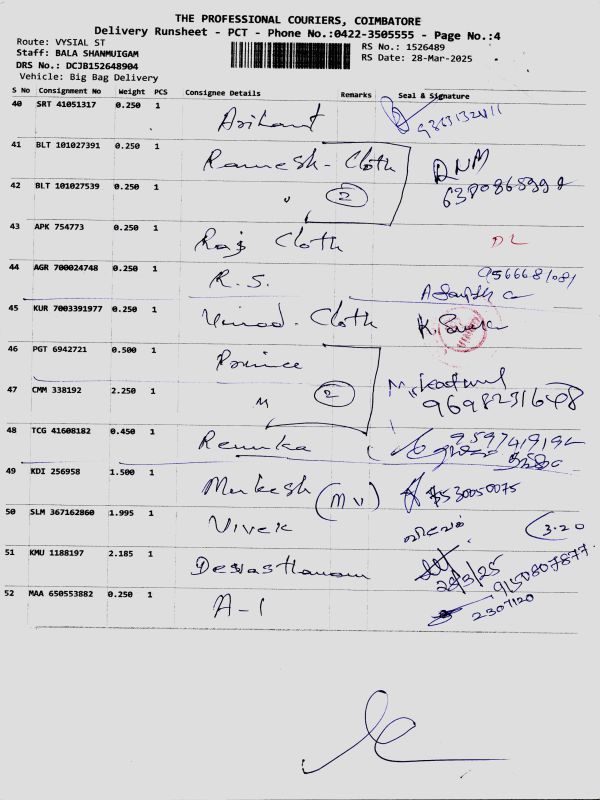 THE PROFESSIONAL COURIERS, COIMBATORE
Delivery Runsheet - PCT - Phone No.:0422-3505555 - Page No.:4
Route: VYSIAL ST
Staff: BALA SHANMUIGAM
DRS No.: DCJB152648904
Vehicle: Big Bag Delivery
RS No.: 1526489
RS Date: 28-Mar-2025
S No Consignment No Weight PCS Consignee Details Remarks Seal & Signature
40 SRT 41051317 0.250 1 Arihant
41 BLT 101027391 0.250 1 Ramesh - Cloth
42 BLT 101027539 0.250 1 " 2
43 APK 754773 0.250 1 Raj Cloth DL
44 AGR 700024748 0.250 1 R.S. 9566681081
45 KUR 7003391977 0.250 1 Vinod. Cloth
46 PGT 6942721 0.500 1 Prince
47 CMM 338192 2.250 1 " 2
48 TCG 41608182 0.450 1 Renuka
49 KDI 256958 1.500 1 Mukesh (MV)
50 SLM 367162860 1.995 1 Vivek 3.20
51 KMU 1188197 2.185 1 Devasthanam 28/3/25 9150807877
52 MAA 650553882 0.250 1 A-1 2307120